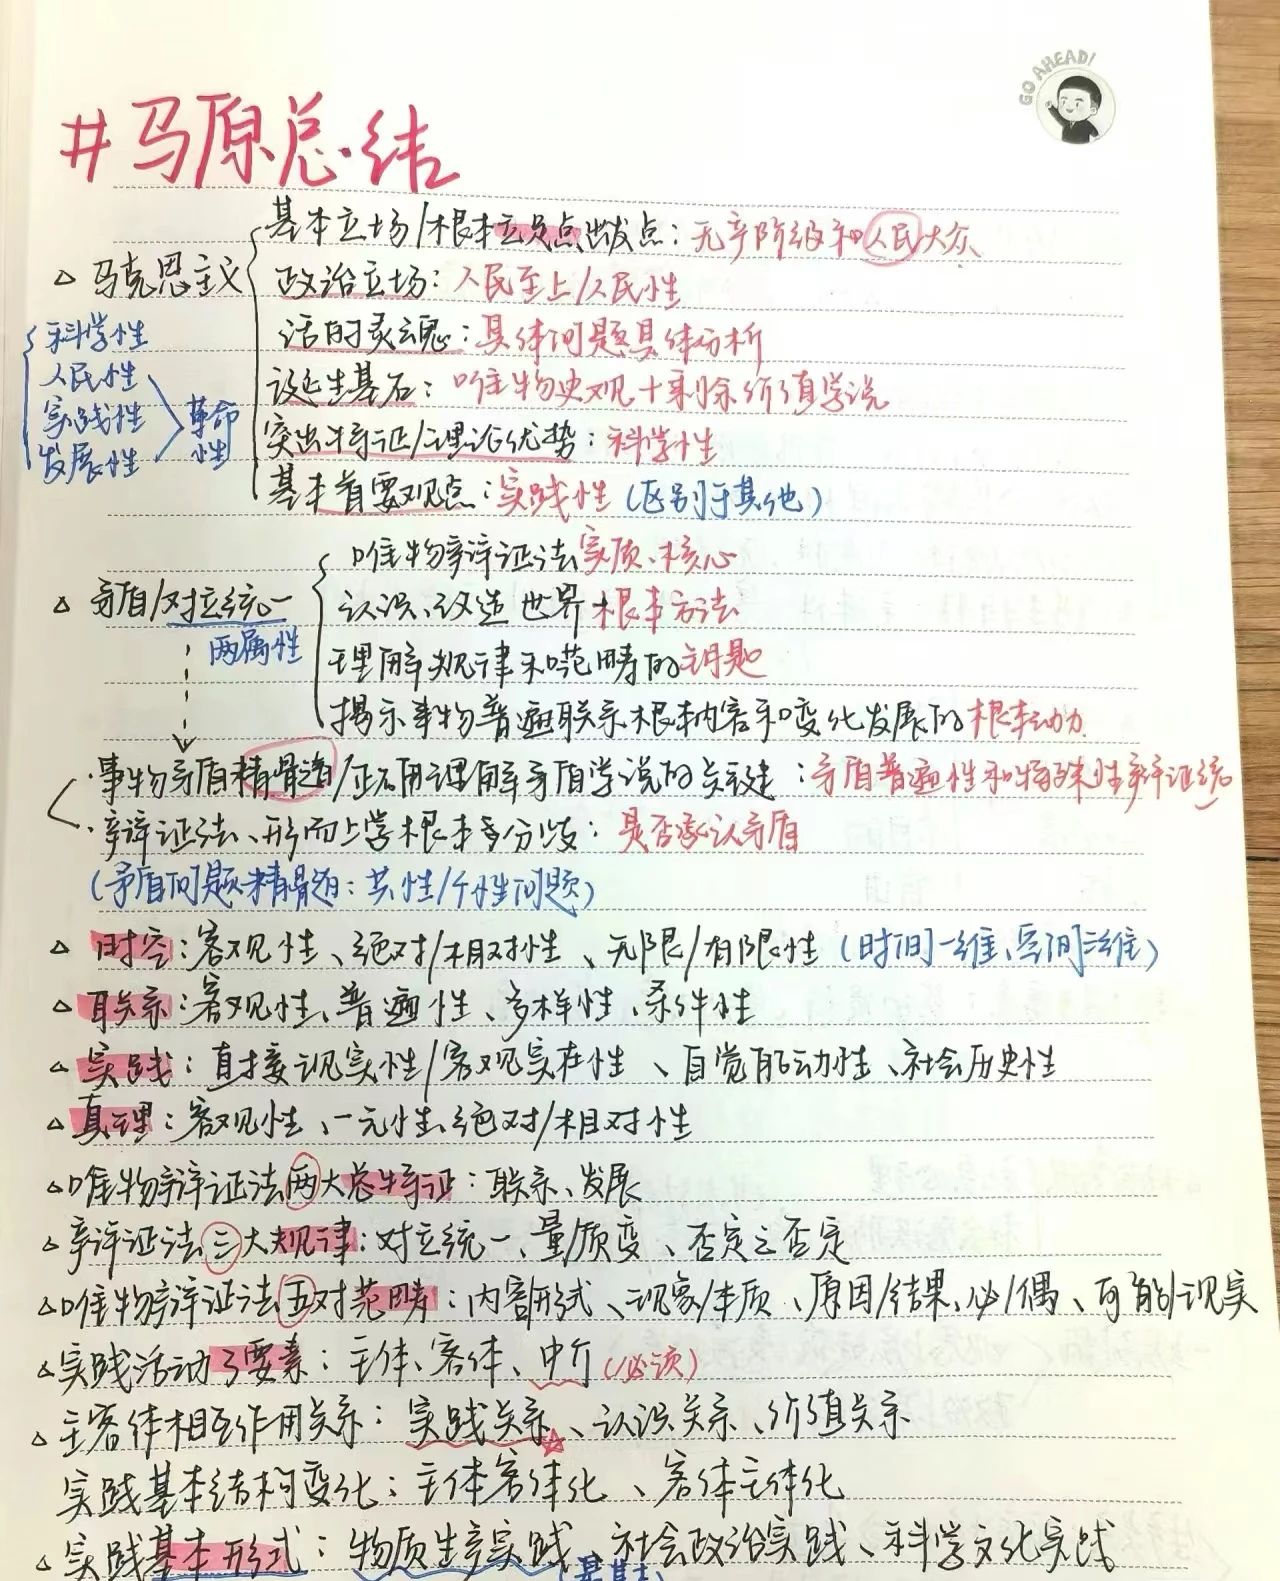 GO AHEAD!
#马原总结
基本立场/根本立足点出发点：无产阶级和人民大众
△ 马克思主义
政治立场：人民至上/人民性
科学性
活的灵魂：具体问题具体分析
人民性
诞生基石：唯物史观+剩余价值学说
实践性
革命性
突出特征/理论优势：科学性
发展性
基本首要观点：实践性（区别于其他）
唯物辩证法实质、核心
△ 矛盾/对立统一
认识、改造世界根本方法
两属性
理解规律和范畴的钥匙
揭示事物普遍联系根本内容和变化发展的根本动力
·事物矛盾精髓/正确理解矛盾学说的关键：矛盾普遍性和特殊性辩证统一
·辩证法、形而上学根本分歧：是否承认矛盾
（矛盾问题精髓：共性/个性问题）
△ 时空：客观性、绝对/相对性、无限/有限性（时间一维、空间三维）
△ 联系：客观性、普遍性、多样性、条件性
△ 实践：直接现实性/客观实在性、自觉能动性、社会历史性
△ 真理：客观性、一元性、绝对/相对性
△ 唯物辩证法两大总特征：联系、发展
△ 辩证法三大规律：对立统一、量/质变、否定之否定
△ 唯物辩证法五对范畴：内容/形式、现象/本质、原因/结果、必/偶、可能/现实
△ 实践活动3要素：主体、客体、中介（必须）
△ 主客体相互作用关系：实践关系、认识关系、价值关系
实践基本结构变化：主体客体化、客体主体化
△ 实践基本形式：物质生产实践、社会政治实践、科学文化实践